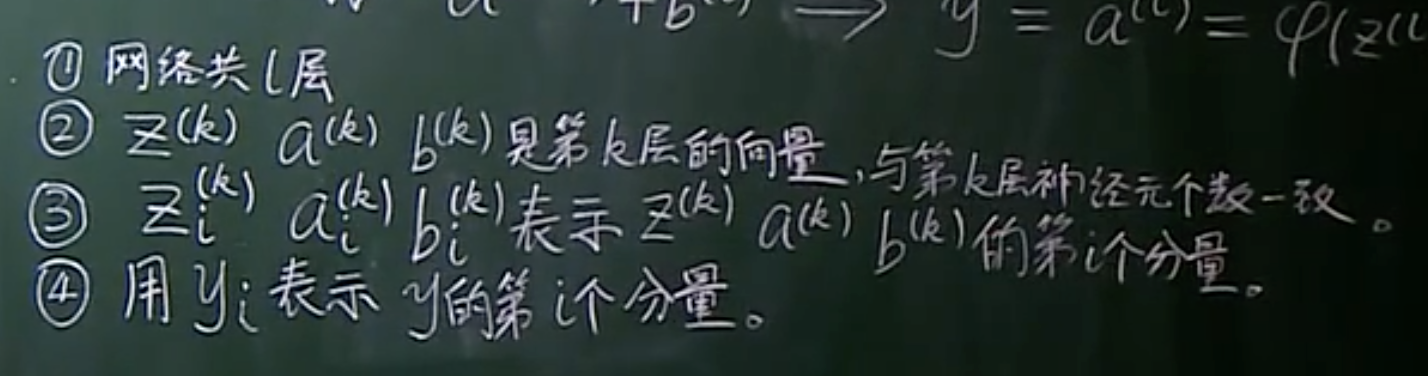 a +b⁽ ⁾ ⟹ y = a⁽ˡ⁾ = φ(z⁽ˡ
① 网络共l层
② z⁽ᵏ⁾ a⁽ᵏ⁾ b⁽ᵏ⁾是第k层的向量,与第k层神经元个数一致。
③ zᵢ⁽ᵏ⁾ aᵢ⁽ᵏ⁾ bᵢ⁽ᵏ⁾表示z⁽ᵏ⁾ a⁽ᵏ⁾ b⁽ᵏ⁾的第i个分量。
④ 用yᵢ表示y的第i个分量。